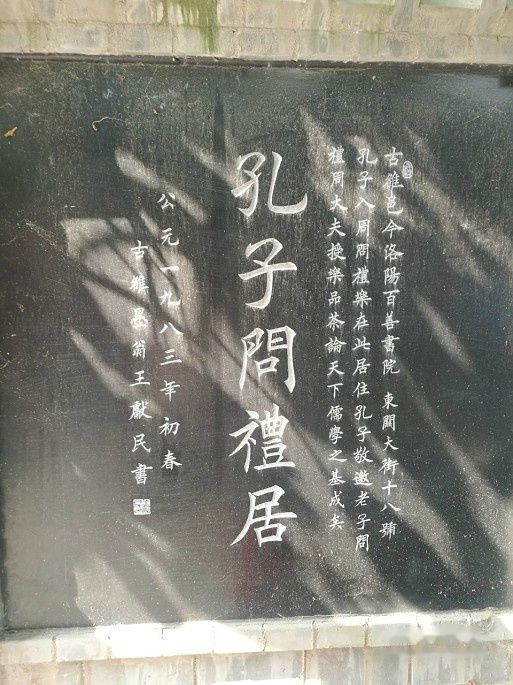 古雒邑今洛陽百善書院 東關大街十八號
孔子入周問禮樂在此居住孔子敬邀老子問
禮周大夫授樂品茶論天下儒學之基成矣
孔子問禮居
公元一九八三年初春
古雒愚翁王獻民書